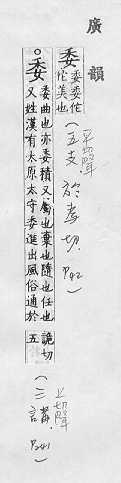 廣韻
委 委委佗
佗美也 (五支 於為切 P42)
。委 委曲也亦委積又屬也棄也隨也任也
又姓漢有太原太守委進出風俗通於
詭切
五
(三講 P241)
上聲